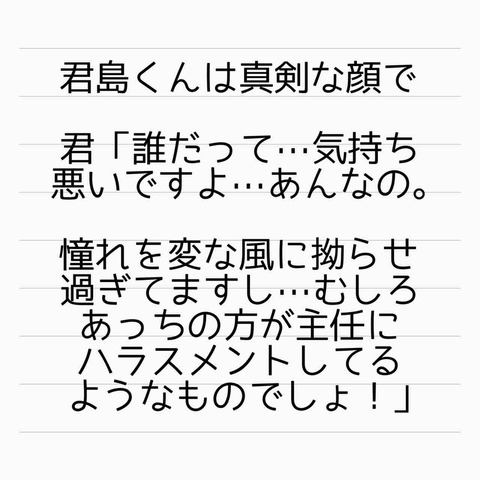 君島くんは真剣な顔で
君「誰だって…気持ち
悪いですよ…あんなの。
憧れを変な風に拗らせ
過ぎてますし…むしろ
あっちの方が主任に
ハラスメントしてる
ようなものでしょ！」